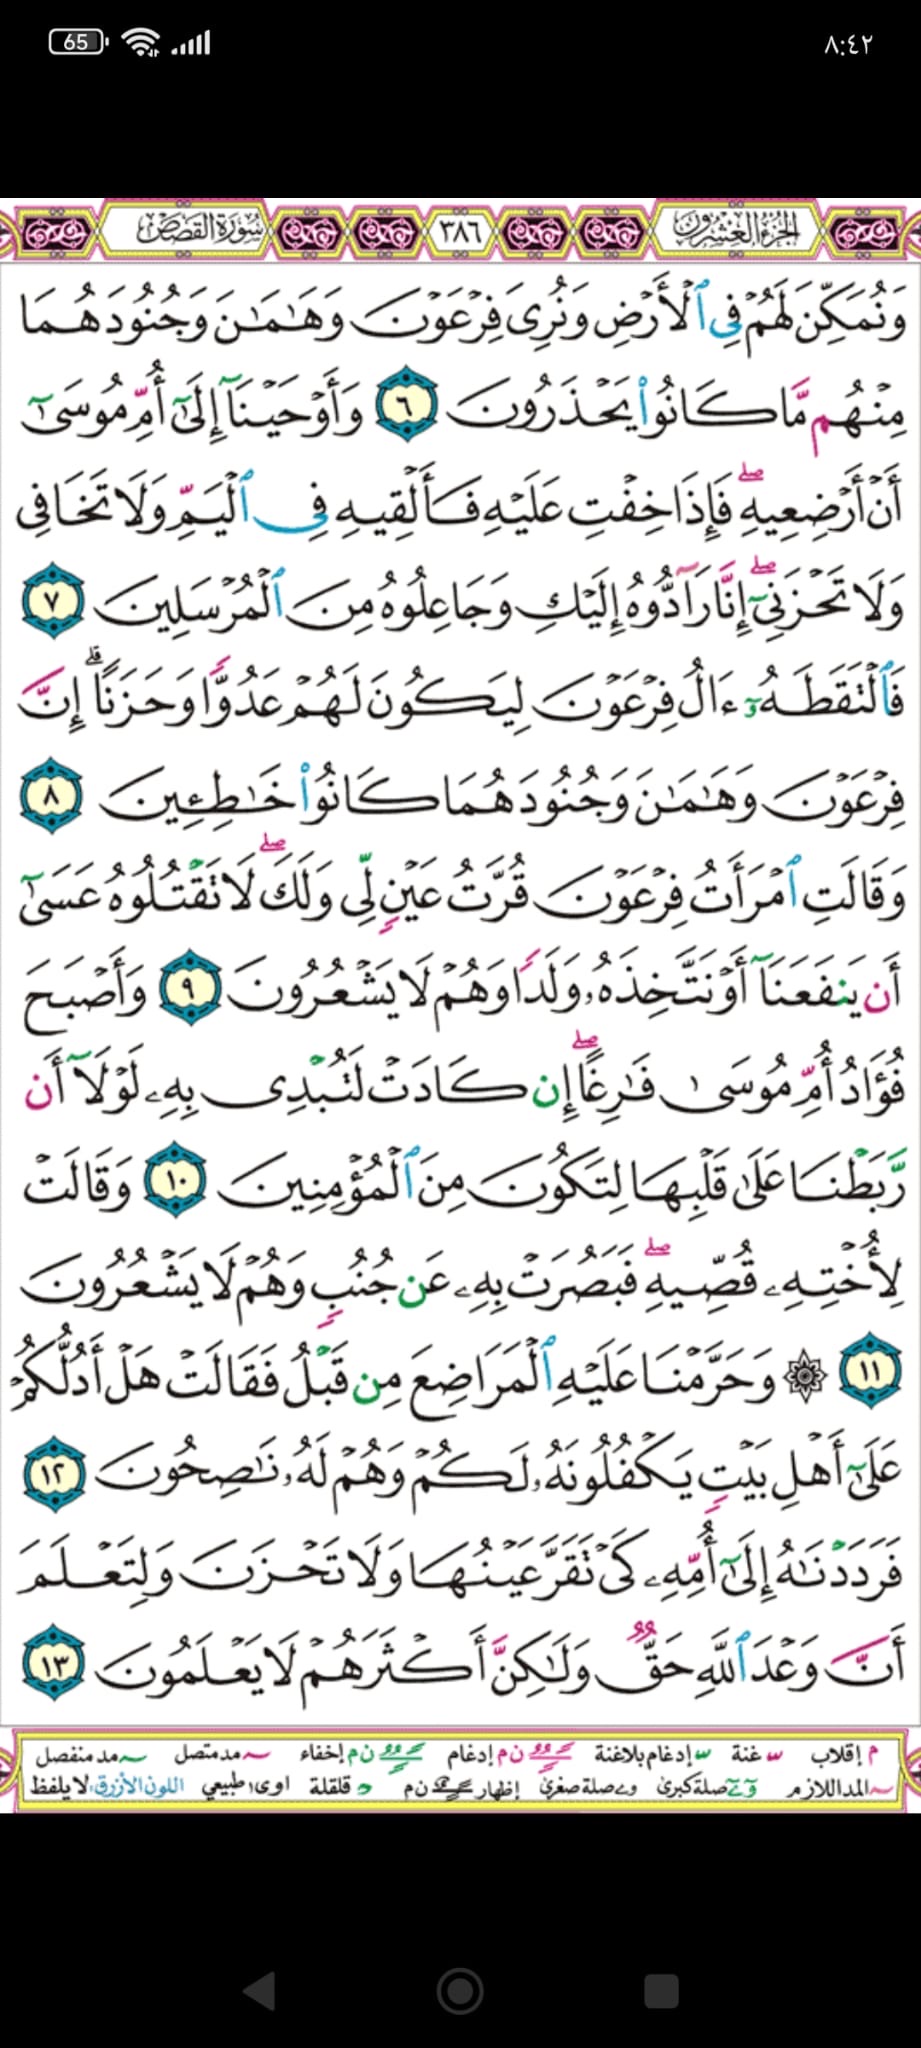 65
٨:٤٢
الجزء العشرون
٣٨٦
سورة القصص
وَنُمَكِّنَ لَهُمْ فِى ٱلْأَرْضِ وَنُرِىَ فِرْعَوْنَ وَهَـٰمَـٰنَ وَجُنُودَهُمَا
مِنْهُم مَّا كَانُوا۟ يَحْذَرُونَ ٦ وَأَوْحَيْنَآ إِلَىٰٓ أُمِّ مُوسَىٰٓ
أَنْ أَرْضِعِيهِ ۖ فَإِذَا خِفْتِ عَلَيْهِ فَأَلْقِيهِ فِى ٱلْيَمِّ وَلَا تَخَافِى
وَلَا تَحْزَنِىٓ ۖ إِنَّا رَآدُّوهُ إِلَيْكِ وَجَاعِلُوهُ مِنَ ٱلْمُرْسَلِينَ ٧
فَٱلْتَقَطَهُۥٓ ءَالُ فِرْعَوْنَ لِيَكُونَ لَهُمْ عَدُوًّا وَحَزَنًا ۗ إِنَّ
فِرْعَوْنَ وَهَـٰمَـٰنَ وَجُنُودَهُمَا كَانُوا۟ خَـٰطِـِٔينَ ٨
وَقَالَتِ ٱمْرَأَتُ فِرْعَوْنَ قُرَّتُ عَيْنٍ لِّى وَلَكَ ۖ لَا تَقْتُلُوهُ عَسَىٰٓ
أَن يَنفَعَنَآ أَوْ نَتَّخِذَهُۥ وَلَدًا وَهُمْ لَا يَشْعُرُونَ ٩ وَأَصْبَحَ
فُؤَادُ أُمِّ مُوسَىٰ فَـٰرِغًا ۖ إِن كَادَتْ لَتُبْدِى بِهِۦ لَوْلَآ أَن
رَّبَطْنَا عَلَىٰ قَلْبِهَا لِتَكُونَ مِنَ ٱلْمُؤْمِنِينَ ١٠ وَقَالَتْ
لِأُخْتِهِۦ قُصِّيهِ ۖ فَبَصُرَتْ بِهِۦ عَن جُنُبٍ وَهُمْ لَا يَشْعُرُونَ
١١ ۞ وَحَرَّمْنَا عَلَيْهِ ٱلْمَرَاضِعَ مِن قَبْلُ فَقَالَتْ هَلْ أَدُلُّكُمْ
عَلَىٰٓ أَهْلِ بَيْتٍ يَكْفُلُونَهُۥ لَكُمْ وَهُمْ لَهُۥ نَـٰصِحُونَ ١٢
فَرَدَدْنَـٰهُ إِلَىٰٓ أُمِّهِۦ كَىْ تَقَرَّ عَيْنُهَا وَلَا تَحْزَنَ وَلِتَعْلَمَ
أَنَّ وَعْدَ ٱللَّهِ حَقٌّ وَلَـٰكِنَّ أَكْثَرَهُمْ لَا يَعْلَمُونَ ١٣
م إقلاب غنة إدغام بلاغنة ن م إدغام ن م إخفاء مد متصل مد منفصل
المد اللازم صلة كبرى صلة صغرى إظهار ن م قلقلة اوى طبيعي اللون الأزرق: لا يلفظ